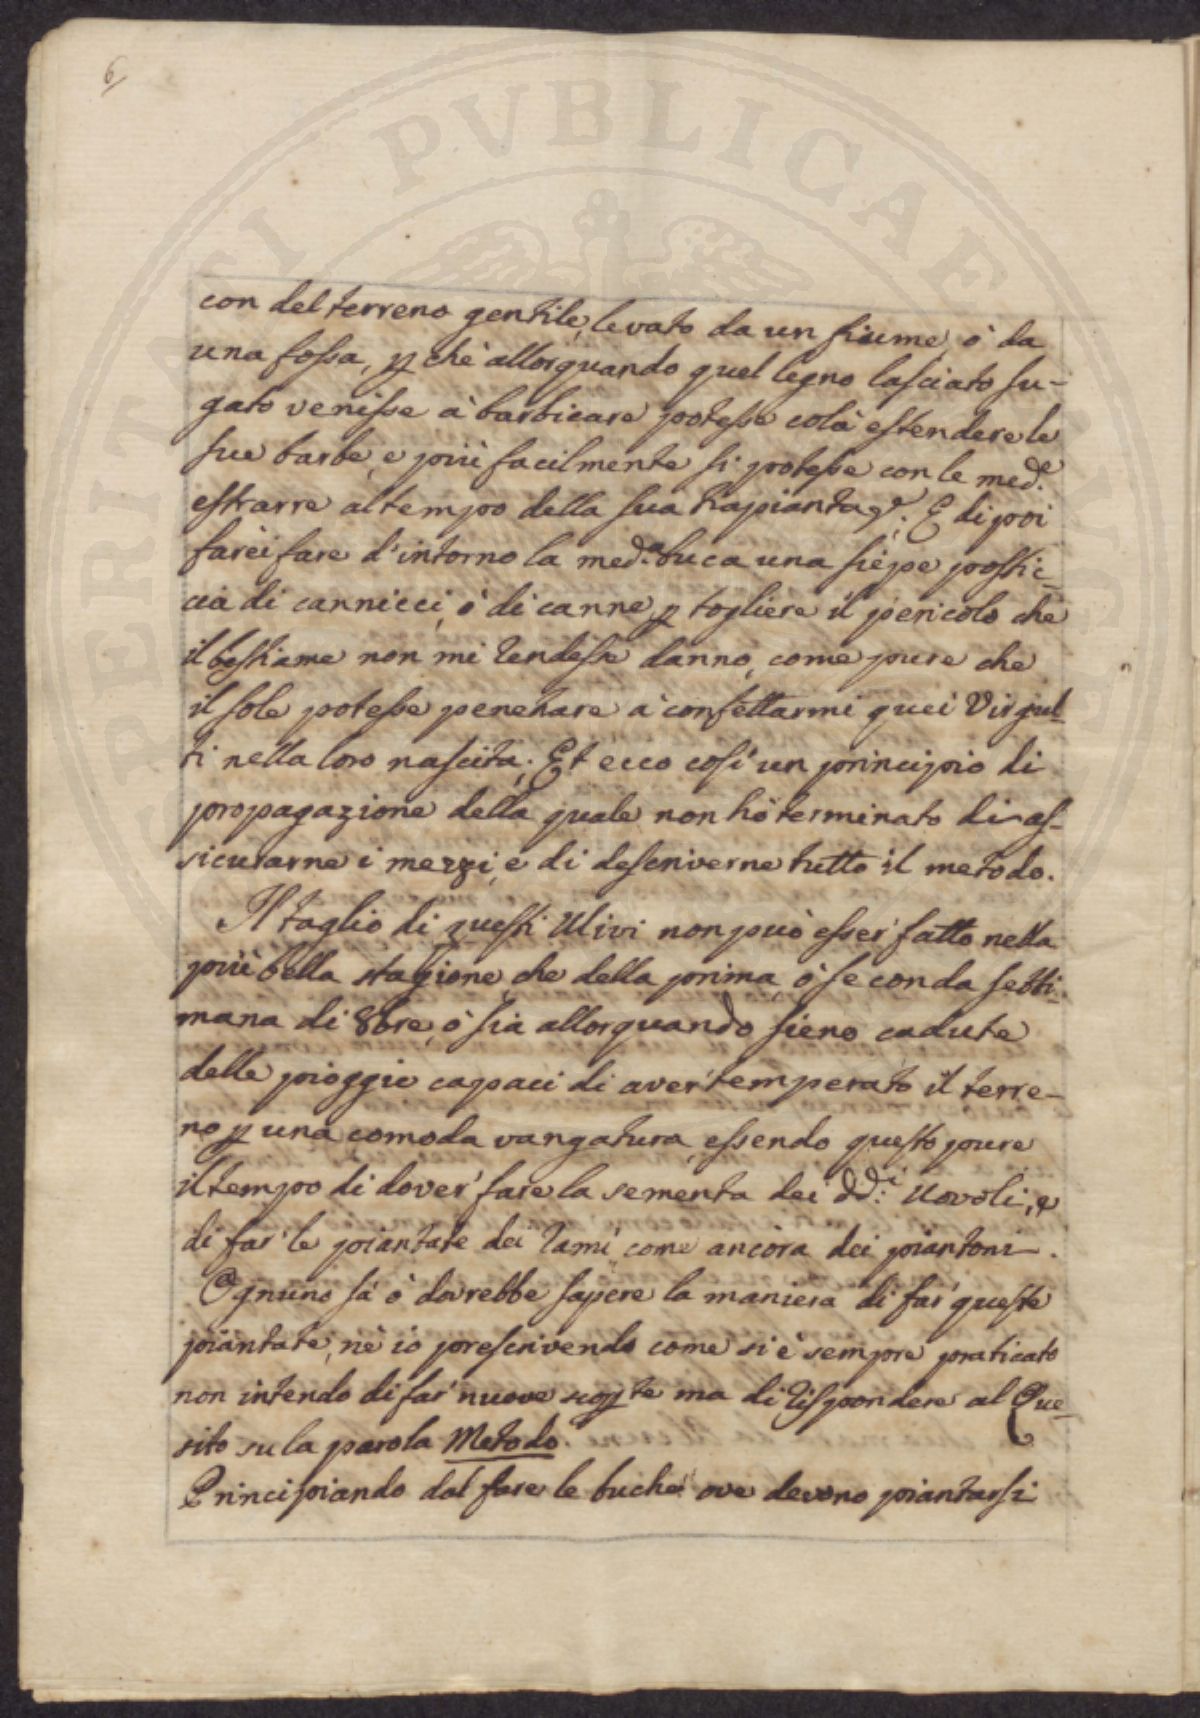 6
con del terreno gentile, levato da un fiume, ò da
una fossa, p chè allorquando quel legno lasciato su-
gato venisse à barbicare potesse colà estendere le
sue barbe, e più facilmente si potesse con le med.e
estrarre al tempo della sua trapiantag.e. E di poi
farei fare d'intorno la med.a buca una siepe postic-
cia di cannicci, ò di canne p togliere il pericolo che
il bestiame non mi rendesse danno, come pure che
il sole potesse penetrare à confettarmi quei Virgul-
ti nella loro nascita; Et ecco così un principio di
propagazione della quale non hò terminato di as-
sicurarne i mezzi, e di descriverne tutto il metodo.
Il taglio di questi Ulivi non può esser fatto nella
più bella stagione che della prima ò seconda setti-
mana di 8bre, ò sia allorquando sieno cadute
delle pioggie capaci di aver temperato il terre-
no p una comoda vangatura, essendo questo pure
il tempo di dover fare la sementa dei dd.i Uovoli, e
di far le piantate dei rami come ancora dei piantoni.
Ognuno sà ò dovrebbe sapere la maniera di far queste
piantate, nè io prescrivendo come si è sempre praticato
non intendo di far nuove scopte ma di rispondere al Que-
sito su la parola Metodo.
Principiando dal fare le buche ove devono piantarsi
PERITATI PVBLICAE AVGEN